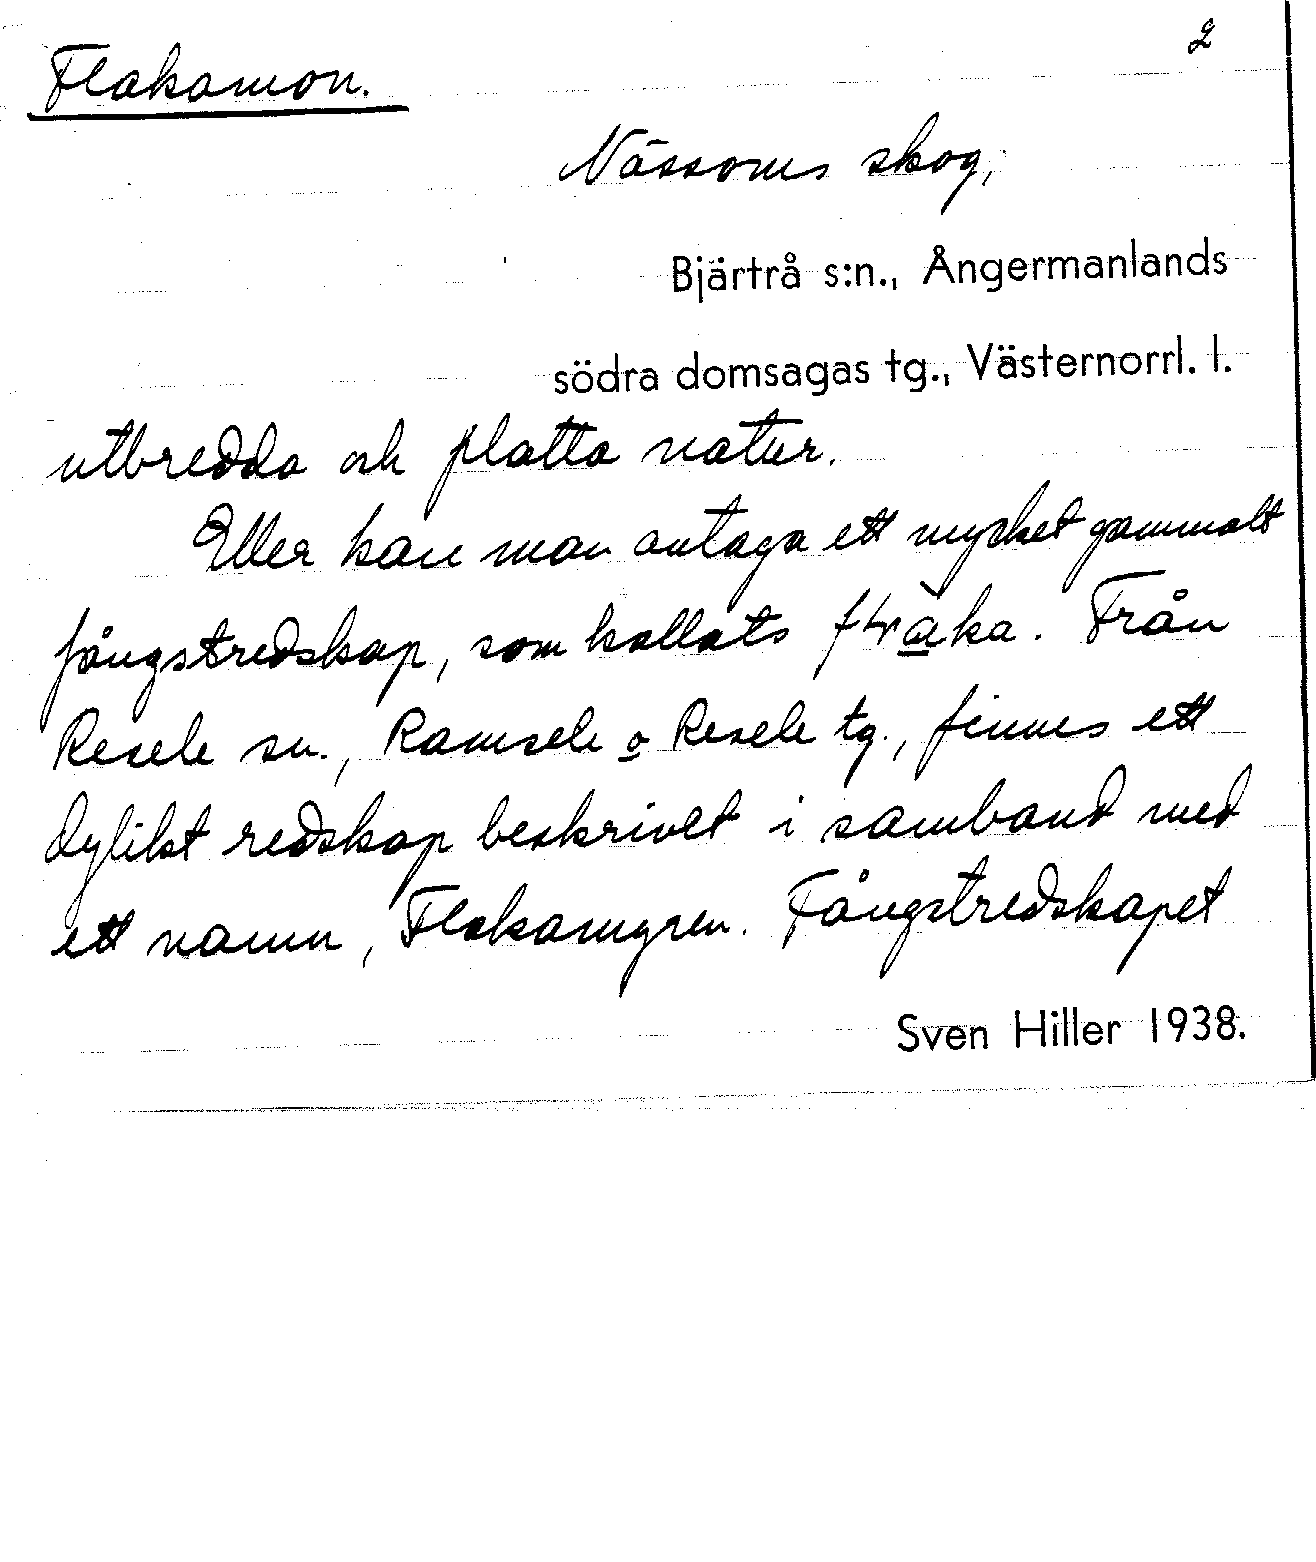 2
Flakamon.
Nässoms skog,
Bjärtrå s:n., Ångermanlands
södra domsagas tg., Västernorrl. l.
utbredda och platta natur.
Eller kan man antaga ett mycket gammalt
fångstredskap, som kallats Från
Resele sn., Ramsele o Resele tg., finnes ett
dylikt redskap beskrivet i samband med
ett namn, Flakamyren. Fångstredskapet
Sven Hiller 1938.